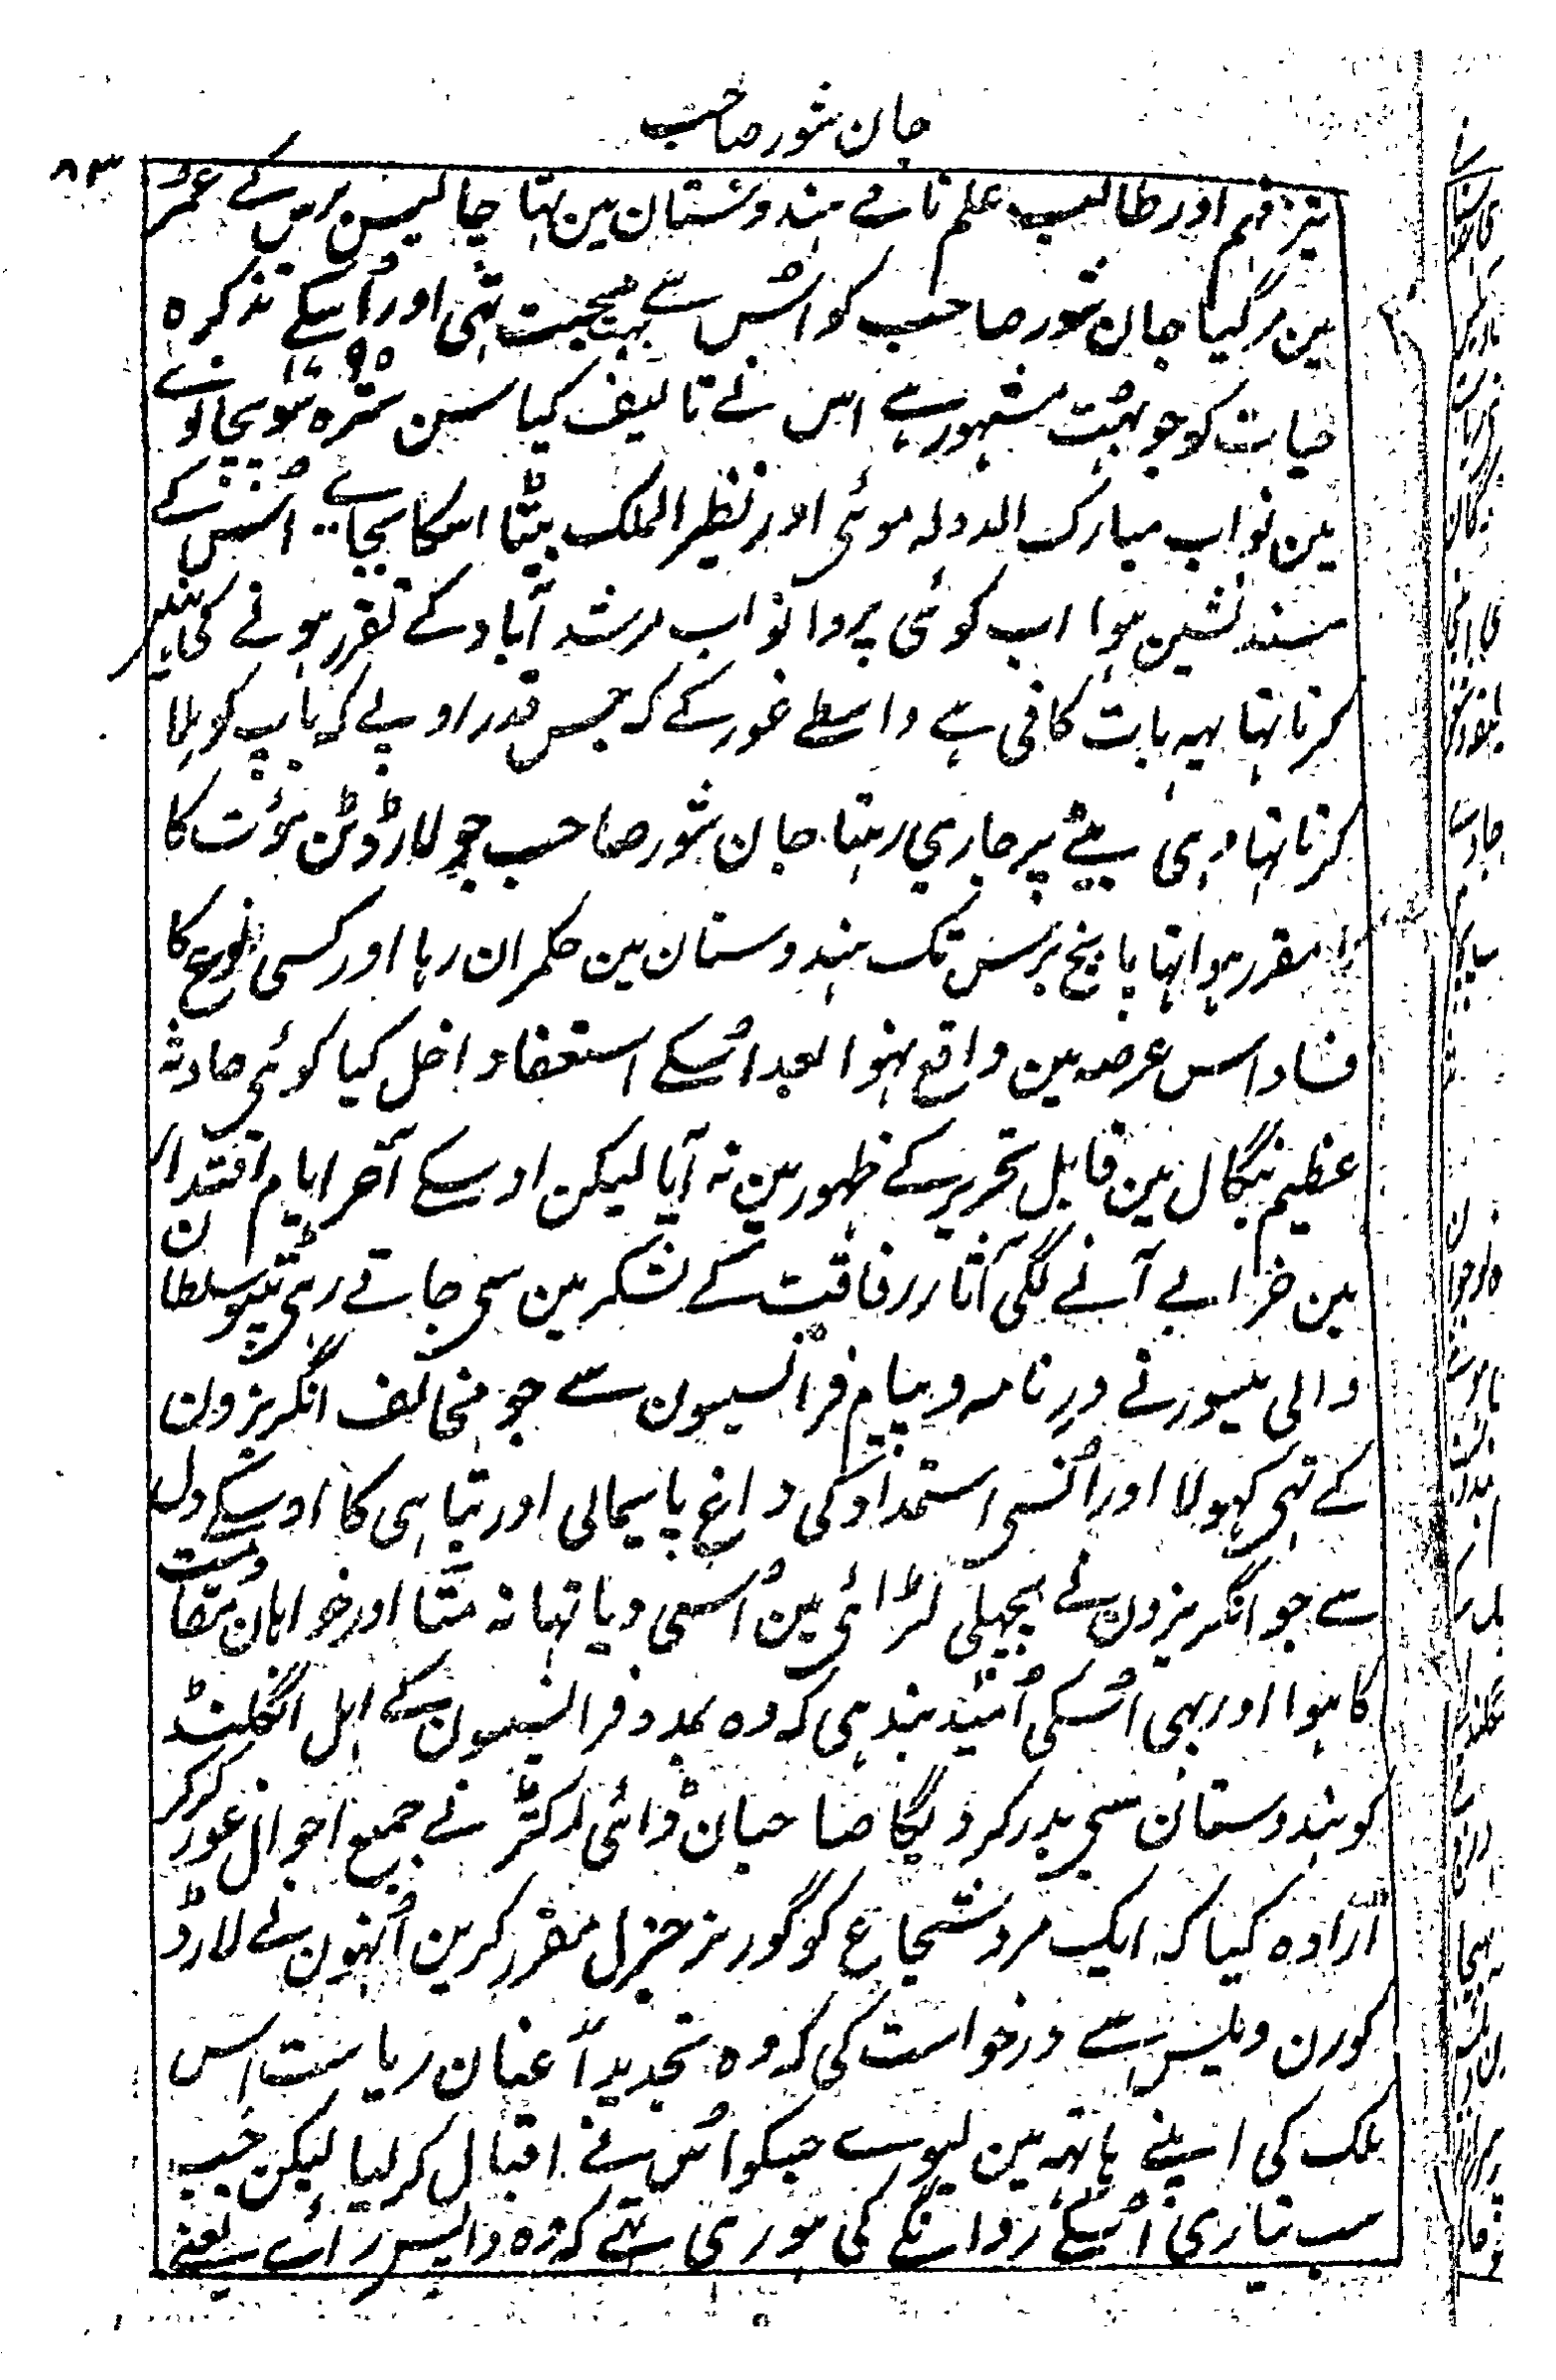 جان شور صاحب
۸۳
تیز فہم اور طالب علم نامے ہندوستان مین تہا چالیس برس کے عمر
مین مرگیا جان شور صاحب کو اُس سے بہت محبت تہی اور اُسکے تذکرہ
حیات کو جو بہت مشہور ہے اس نے تالیف کیا سن سترہ سو پچانوے ۱۷۹۵
مین نواب مبارک الدولہ موئی اور نظیر الملک بیٹا اسکا بجاے اُس کے
مسند نشین ہوا اب کوئی پروا نواب مرشد آباد کے تقرر ہونے کی نہین
کرتا تہا یہہ بات کافی ہے واسطے غور کے کہ جس قدر روپے کہ باپ کو ملا
کرتا تہا وہی بیٹے پر جاری رہتا جان شور صاحب جو لارڈ ٹن موٹ کا
مقرر ہوا تہا پانچ برس تک ہندوستان مین حکمران رہا اور کسی نوع کا
فساد اس عرصہ مین واقع نہوا بعد اُسکے استعفا داخل کیا کوئی حادثہ
عظیم بنگال مین قابل تحریر کے ظہور مین نہ آیا لیکن اوسکے آخر ایام اقتدار
مین خرابے آنے لگی آثار رفاقت کے لشکر مین سی جاتے رہی ٹیپو سلطان
والی میسور نے در نامہ و پیام فرانسیسون سے جو مخالف انگریزون
کے تہی کہولا اور اُنسی استمداد کی داغ پایمالی اور تباہی کا اوسکے دل
سے جو انگریزون نے پچہلی لڑائی مین اُسی دیا تہا نہ مٹتا اور خواہان مقاومت
کا ہوا اور یہی اُسکی اُمید بندہی کہ وہ بمدد فرانسیسون کے اہل انگلنڈ
کو ہندوستان سی بدر کر دیگا صاحبان ڈائی رکٹر نے جمیع احوال غور کر کر
ارادہ کیا کہ ایک مرد شجاع کو گورنر جنرل مقرر کرین اُنہون نے لارڈ
کورن ویلس سے درخواست کی کہ وہ تجدیداً عنان ریاست اس
ملک کی اپنے ہاتہہ مین لیوے جسکو اُس نے اقبال کر لیا لیکن جب
سب تیاری اُسکے روانگے کی ہو رہی تہے کہ وہ وایس راے یعنے